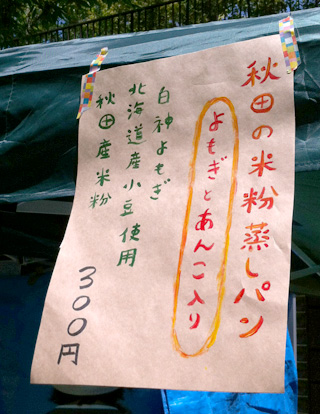 秋田の米粉蒸しパン
よもぎとあんこ入り
白神よもぎ
北海道産小豆使用
秋田産米粉
300円